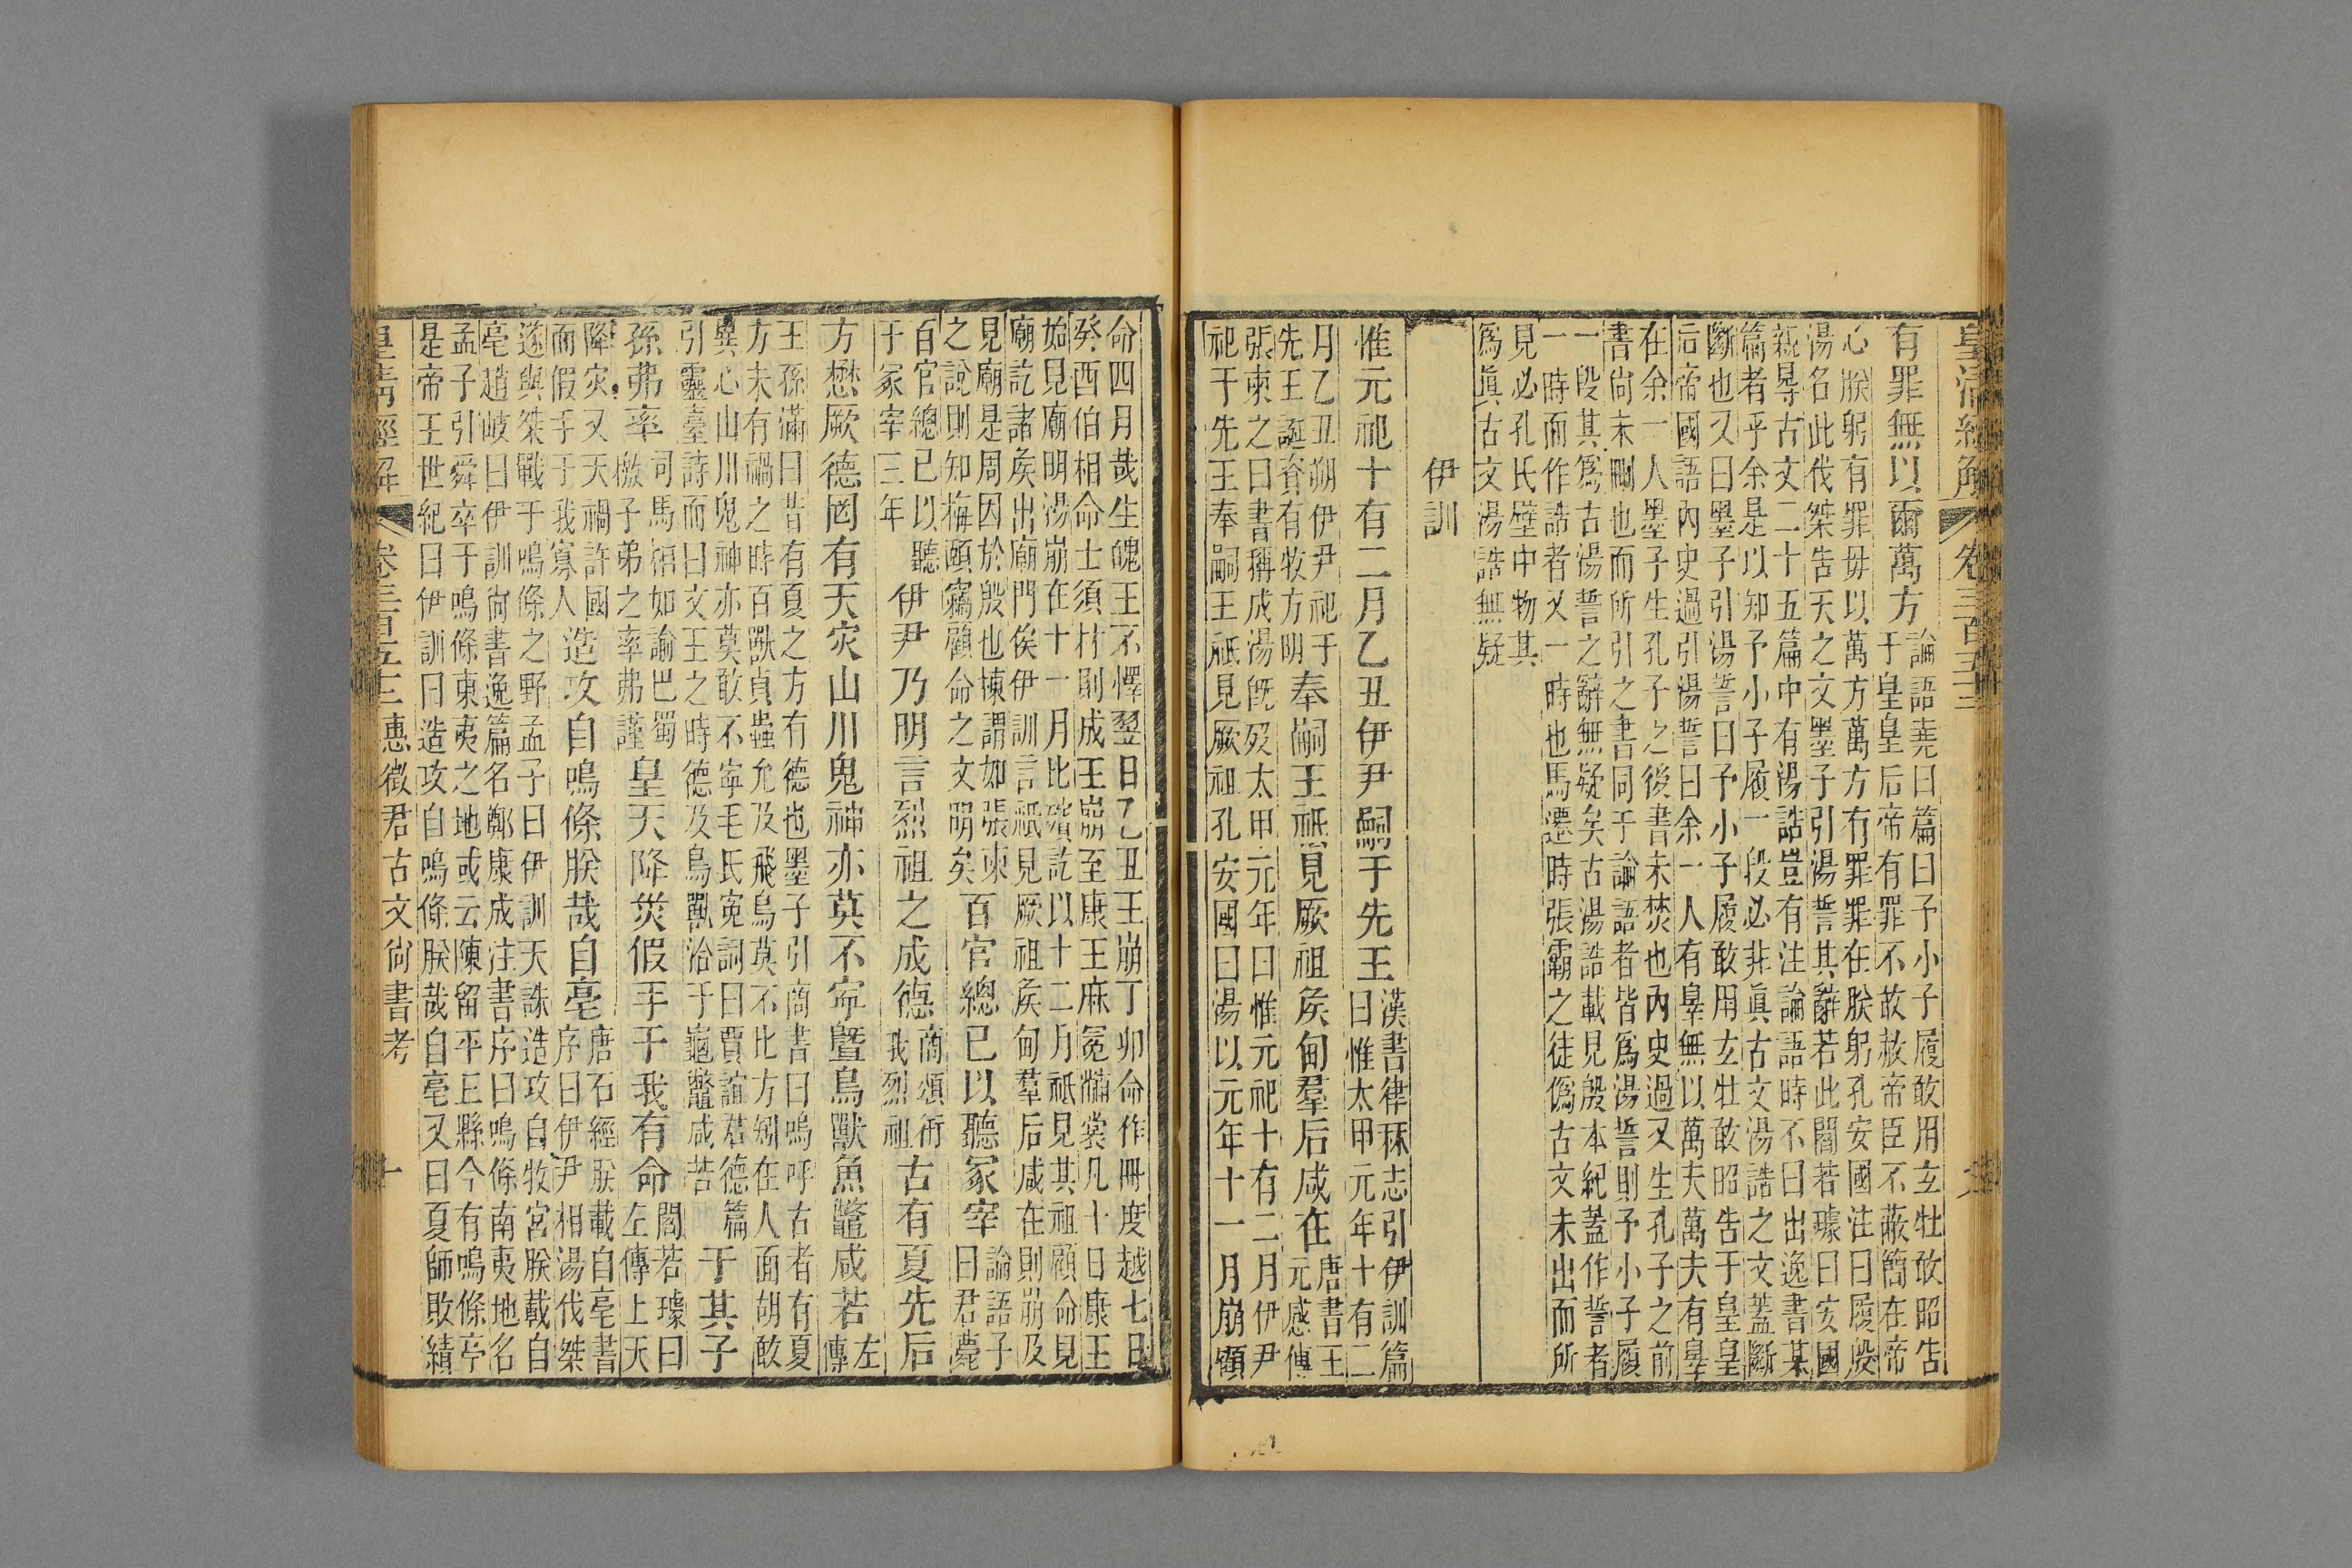 皇清經解 卷三百五十三
有罪無以爾萬方 論語堯曰篇曰予小子履敢用玄牡敢昭告
于皇皇后帝有罪不敢赦帝臣不蔽簡在帝
心朕躬有罪毋以萬方萬方有罪罪在朕躬孔安國注曰履殷
湯名此伐桀告天之文墨子引湯誓其辭若此閻若璩曰安國
親㝵古文二十五篇中有湯誥豈有注論語時不曰出逸書某
篇者乎余是以知予小子履一段必非眞古文湯誥之文蓋斷
斷也又曰墨子引湯誓曰予小子履敢用玄牡敢昭告于皇皇
后帝國語內史過引湯誓曰余一人有辠無以萬夫萬夫有辠
在余一人墨子生孔子之後書未焚也內史過又生孔子之前
書尙未刪也而所引之書同于論語者皆爲湯誓則予小子履
一段其爲古湯誓之辭無疑矣古湯誥載見殷本紀蓋作誓者
一時而作誥者又一時也馬遷時張霸之徒僞古文未出而所
見必孔氏壁中物其
爲眞古文湯誥無疑
伊訓
惟元祀十有二月乙丑伊尹嗣于先王 漢書律秝志引伊訓篇
曰惟太甲元年十有二
月乙丑朔伊尹祀于
先王誕資有牧方明 奉嗣王祗見厥祖矦甸羣后咸在 唐書王
元感傳
張柬之曰書稱成湯旣歿太甲元年曰惟元祀十有二月伊尹
祀于先王奉嗣王祗見厥祖孔安國曰湯以元年十一月崩顧
命四月哉生魄王不懌翌日乙丑王崩丁卯命作冊度越七日
癸酉伯相命士須材則成王崩至康王麻冕黼裳凡十日康王
始見廟明湯崩在十一月比殯訖以十二月祗見其祖顧命見
廟訖諸矦出廟門俟伊訓言祗見厥祖矦甸羣后咸在則崩及
見廟是周因於殷也棟謂如張柬
之說則知梅頤竊顧命之文明矣 百官總已以聽冢宰 論語子
曰君薨
百官總已以聽
于冢宰三年 伊尹乃明言烈祖之成德 商頌衎
我烈祖 古有夏先后
方懋厥德罔有天灾山川鬼神亦莫不寍曁鳥獸魚鼈咸若 左
傳
王孫滿曰昔有夏之方有德也墨子引商書曰嗚呼古者有夏
方未有禍之時百獸貞蟲允及飛鳥莫不比方矧在人面胡敢
異心山川鬼神亦莫敢不寧毛氏寃詞曰賈誼君德篇
引靈臺詩而曰文王之時德及鳥獸洽于龜鼈咸若 于其子
孫弗率 司馬相如諭巴蜀
檄子弟之率弗謹 皇天降災假手于我有命 閻若璩曰
左傳上天
降灾又天禍許國
而假手于我寡人 造攻自鳴條朕哉自亳 唐石經朕載自亳書
序曰伊尹相湯伐桀
遂與桀戰于鳴條之野孟子曰伊訓天誅造攻自牧宮朕載自
亳趙岐曰伊訓尙書逸篇名鄭康成注書序曰鳴條南夷地名
孟子引舜卒于鳴條東夷之地或云陳留平王縣今有鳴條亭
是帝王世紀曰伊訓曰造攻自鳴條朕哉自亳又曰夏師敗績
皇清經解 卷三百五十三 惠徵君古文尙書考 十